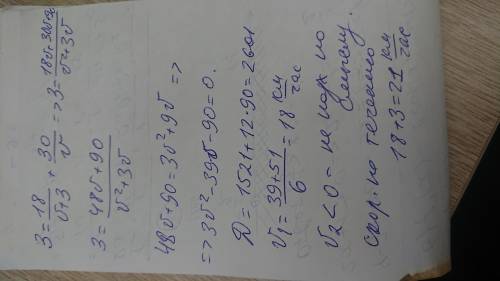 3 = 18/(v+3) + 30/v => 3 = (18v+30v+90)/(v²+3v)
3 = (48v+90)/(v²+3v)
48v+90 = 3v²+9v =>
=> 3v²-39v-90=0.
D = 1521+12·90 = 2601
v₁ = (39+51)/6 = 18 км/час
v₂ < 0 - не подх по
смыслу.
скор. по течению
18+3=21 км/час